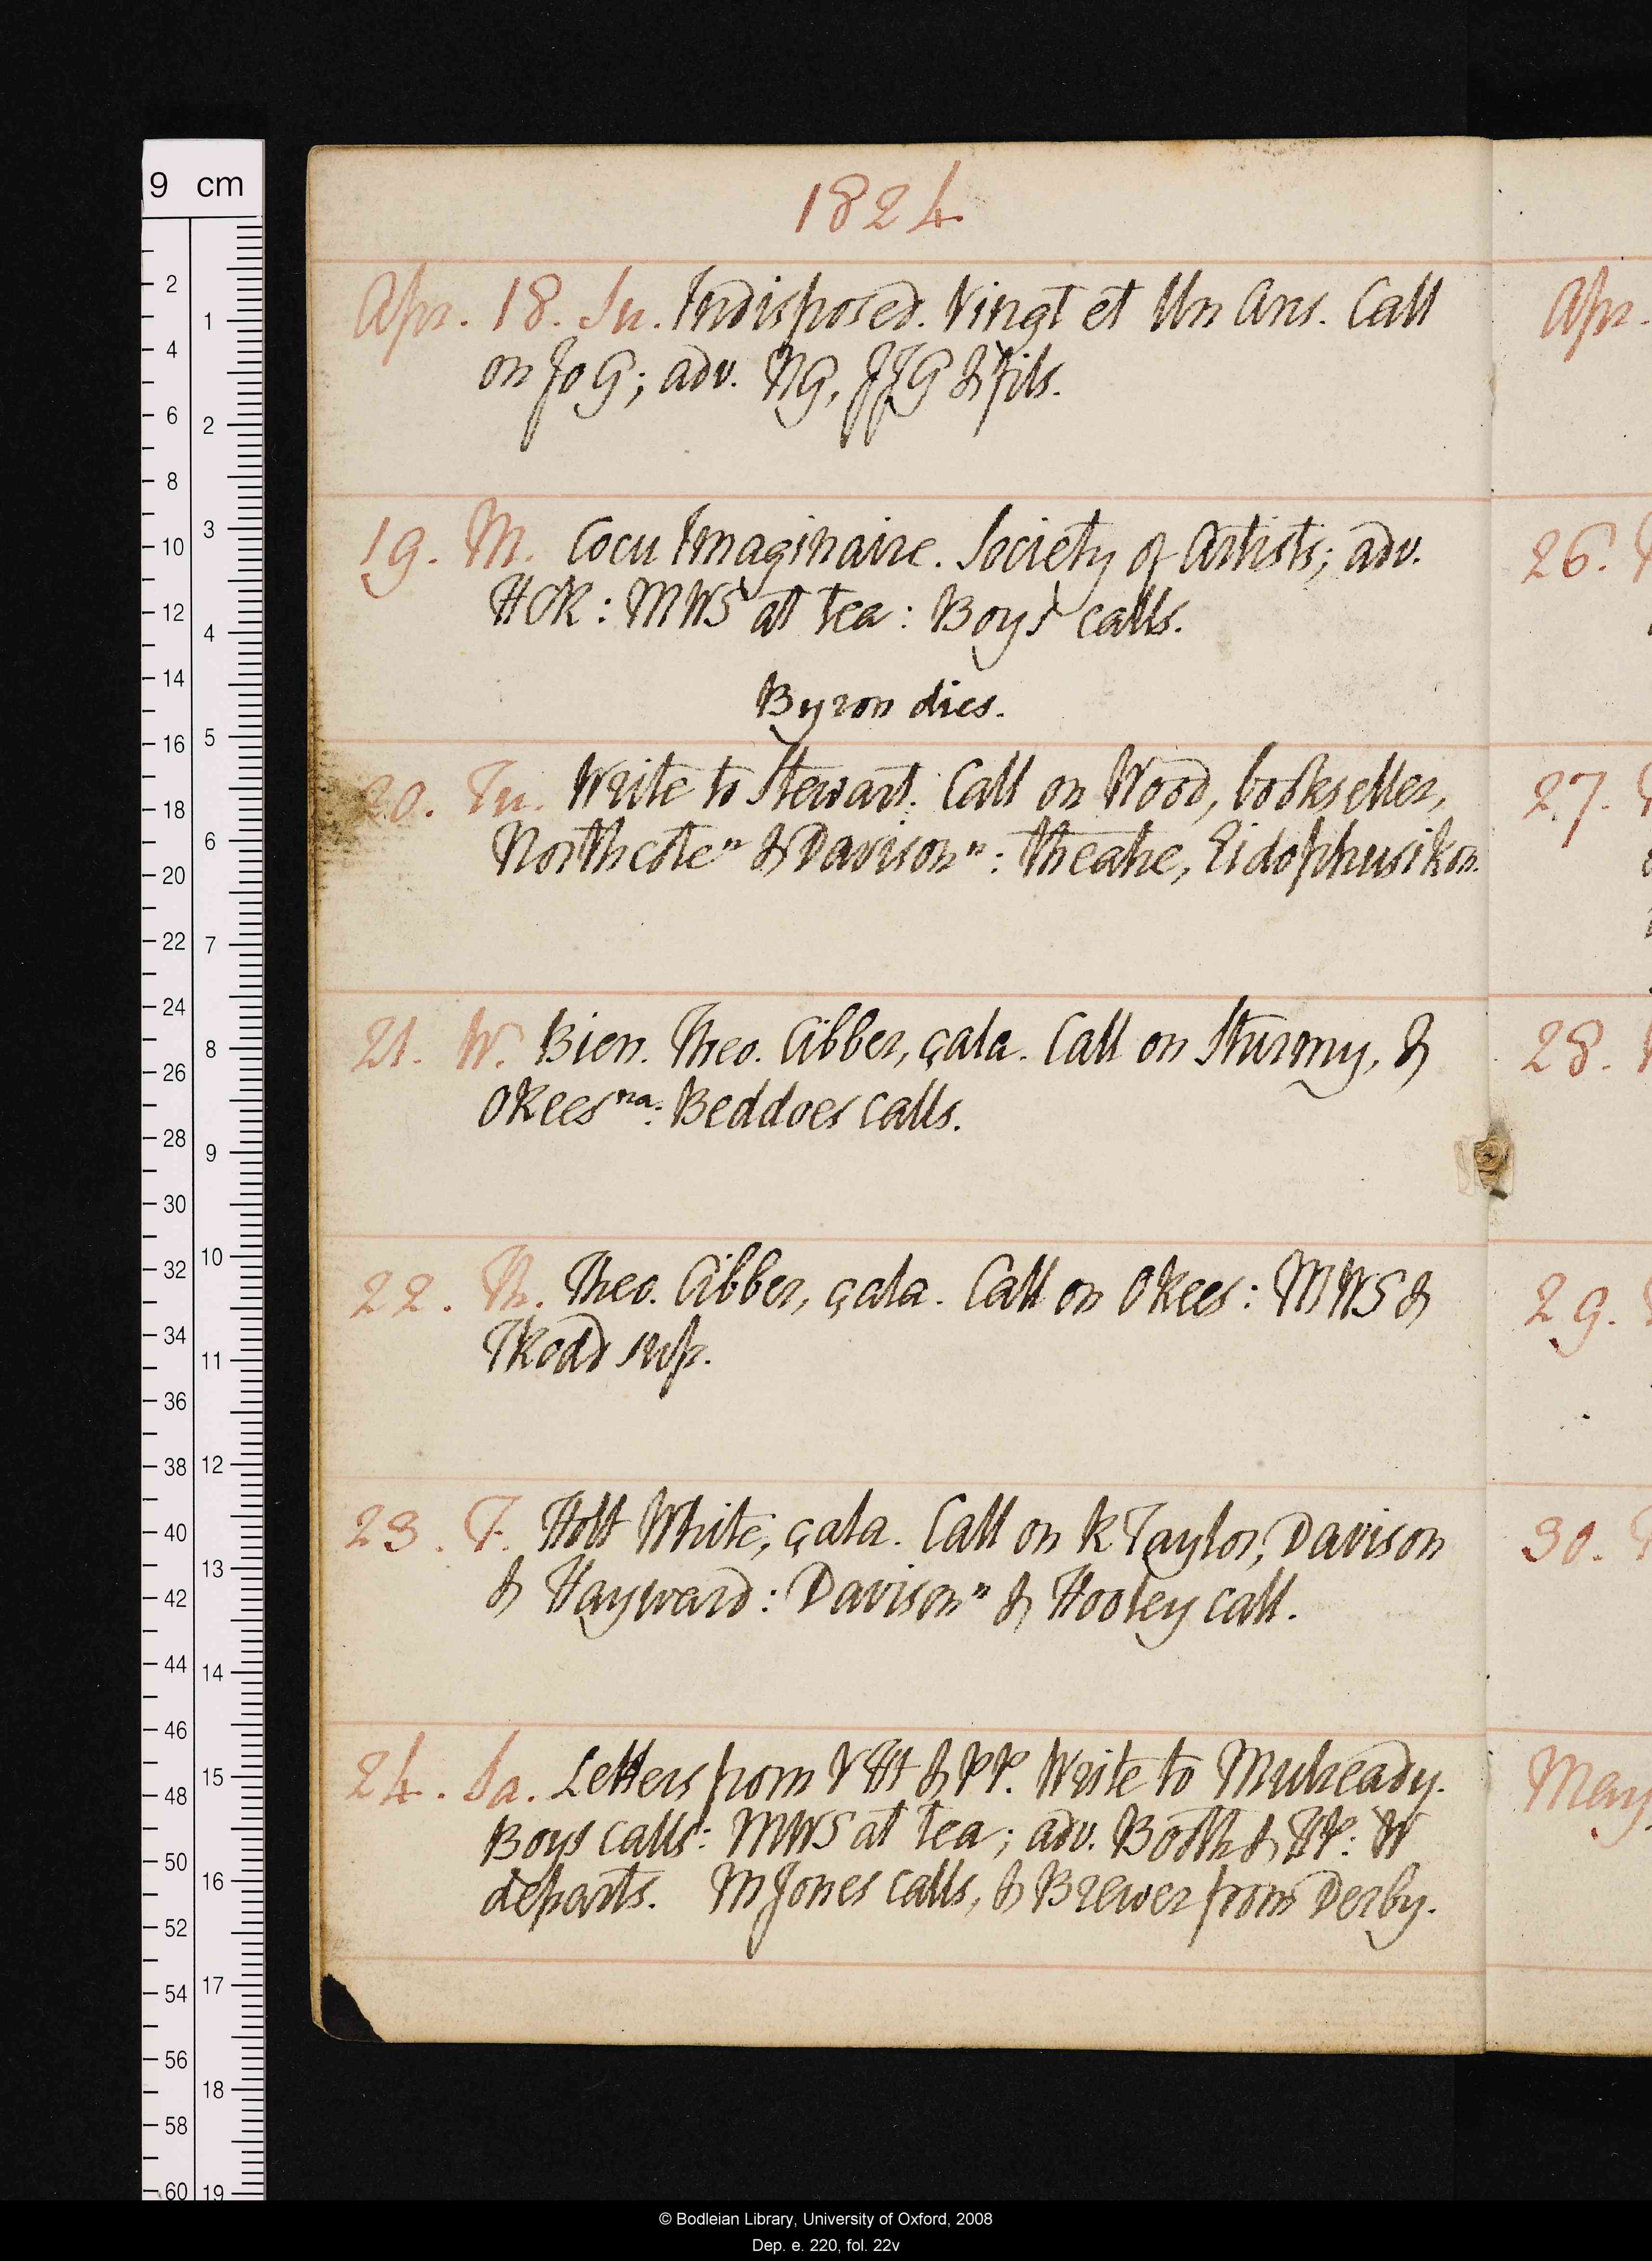 1824
Apr. 18. Su. Indisposed. Vingt et Un Ans. Call
on Jo G; adv. NG, JJG & fils.
19. M. Cocu Imaginaire. Society of Artists; adv.
HCR: MWS at tea: Boys calls.
Byron dies.
20. Tu. Write to Stewart. Call on Wood, bookseller,
Northcote n & Davison n: theatre, Eidophusikon.
21. W. Bien. Theo. Cibber, çala. Call on Sturmy, &
OKees na: Beddoes calls.
22. Th. Theo. Cibber, çala. Call on OKees: MWS &
TKodd sup.
23. F. Holt White, çala. Call on R Taylor, Davison
& Hayward: Davison n & Hooley call.
24. Sa. Letters from & Write to Mulready.
Boys calls: MWS at tea; adv. Booth & HP: W
departs. MJones calls, & Brewer from Derby.
Apr.
26.
27.
28.
29.
30.
May
9 cm
2
4
6
8
10
12
14
16
18
20
22
24
26
28
30
32
34
36
38
40
42
44
46
48
50
52
54
56
58
60
1
2
3
4
5
6
7
8
9
10
11
12
13
14
15
16
17
18
19
© Bodleian Library, University of Oxford, 2008
Dep. e. 220, fol. 22v